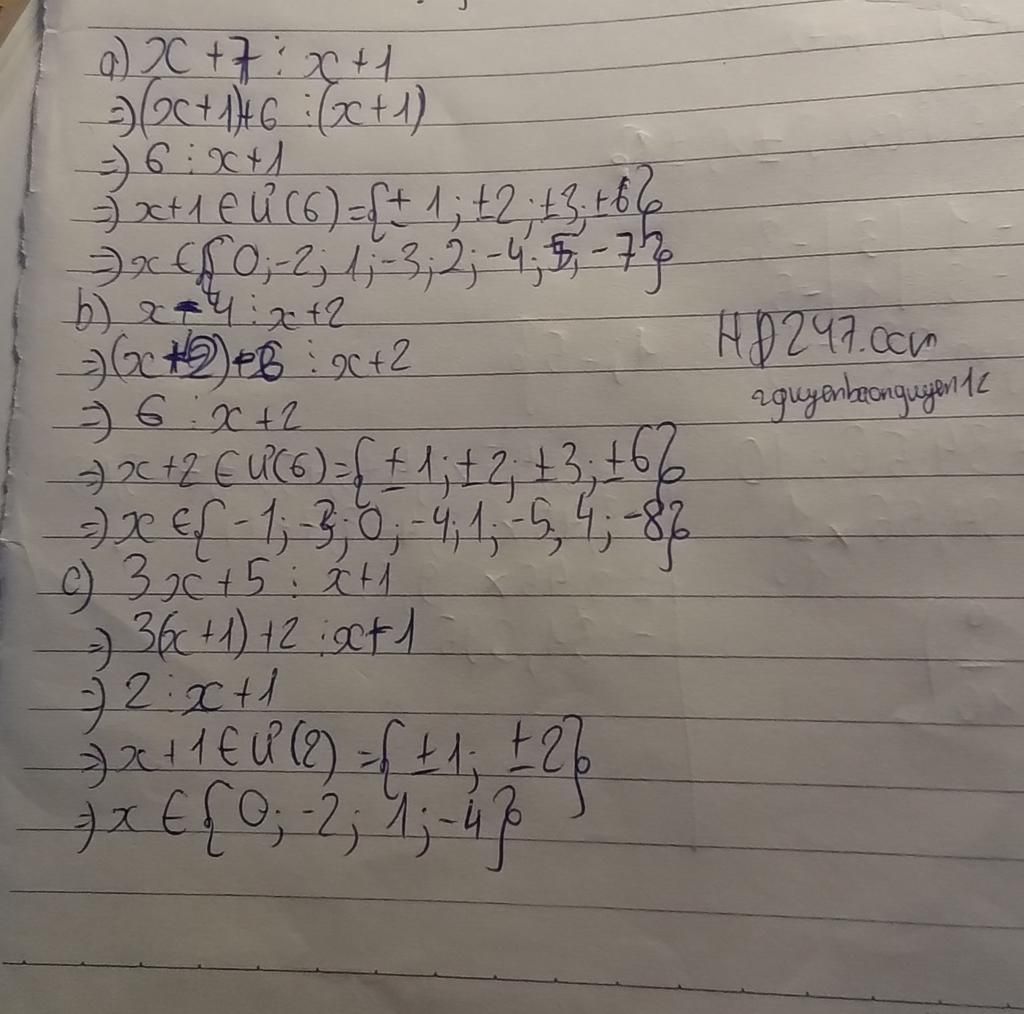 a) x + 7 ⋮ x + 1
⇒ (x+1)+6 ⋮ (x+1)
⇒ 6 ⋮ x+1
⇒ x+1 ∈ Ư(6) = {±1; ±2; ±3; ±6}
⇒ x ∈ {0; -2; 1; -3; 2; -4; 5; -7}
b) x - 4 ⋮ x+2
⇒ (x+2) - 6 ⋮ x+2
⇒ 6 ⋮ x+2
⇒ x+2 ∈ Ư(6) = {±1; ±2; ±3; ±6}
⇒ x ∈ {-1; -3; 0; -4; 1; -5; 4; -8}
c) 3x+5 ⋮ x+1
⇒ 3(x+1)+2 ⋮ x+1
⇒ 2 ⋮ x+1
⇒ x+1 ∈ Ư(2) = {±1; ±2}
⇒ x ∈ {0; -2; 1; -4}
HĐ247.com